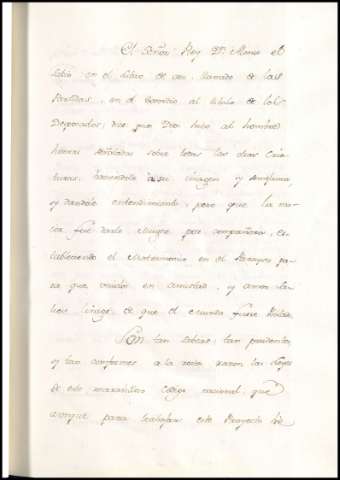 El Señor Rey Dn. Alonso el
Sabio en el libro de oro, llamado de las
Partidas, en el Proemio al titulo de los
Desposados, dice que Dios hizo al hombre
honras señaladas sobre todas las otras Cria
turas, haciendole a su imagen y semejanza,
y dandole entendimiento, pero que la ma-
ior fue darle Muger por compañera, es-
tableciendo el Matrimonio en el Parayso pa
ra que vivider en amistad, y
linage de que el mundo fuese
Son tan sabias, tan prudentes,
y tan conformes a la recta razon las Leyes
de este maravilloso Codigo nacional, que
aunque para trabajar este Proyecto he